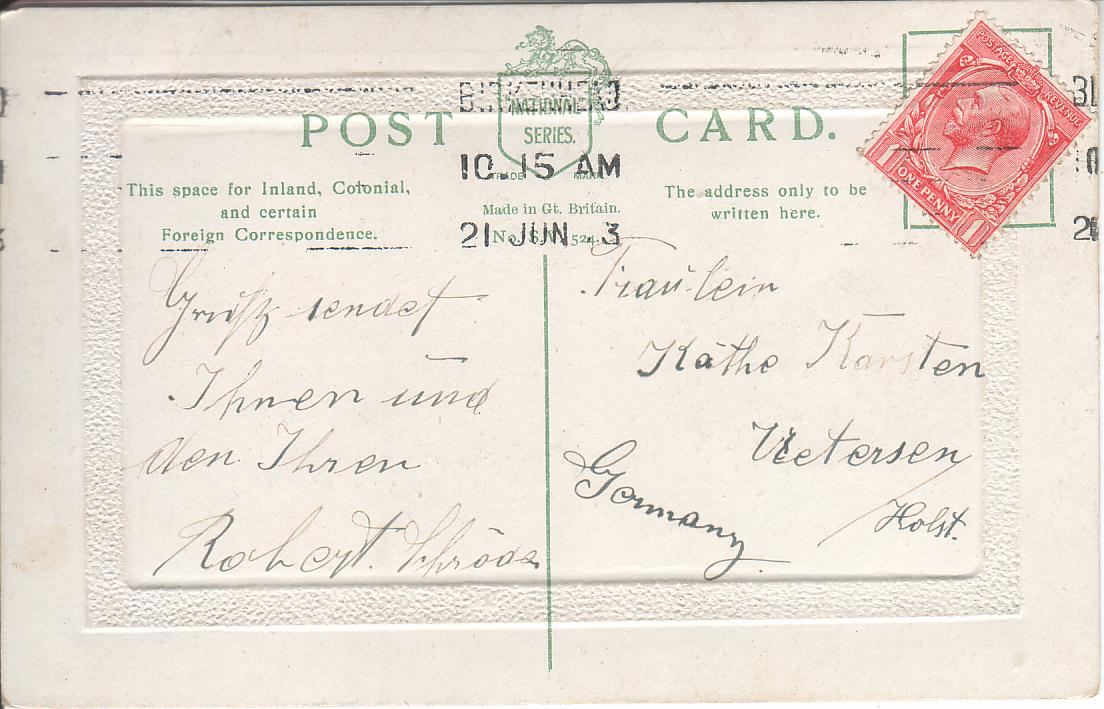 POST CARD.
NATIONAL
SERIES.
TRADE MARK
BIRKENHEAD
10.15 AM
21 JUN 3
This space for Inland, Colonial,
and certain
Foreign Correspondence.
Made in Gt. Britain.
No.
The address only to be
written here.
POSTAGE REVENUE
1 ONE PENNY 1
Gruß sendet
Ihnen und
den Ihren
Robert Schröder
Fräulein
Käthe Karsten
Uetersen
Holst.
Germany.